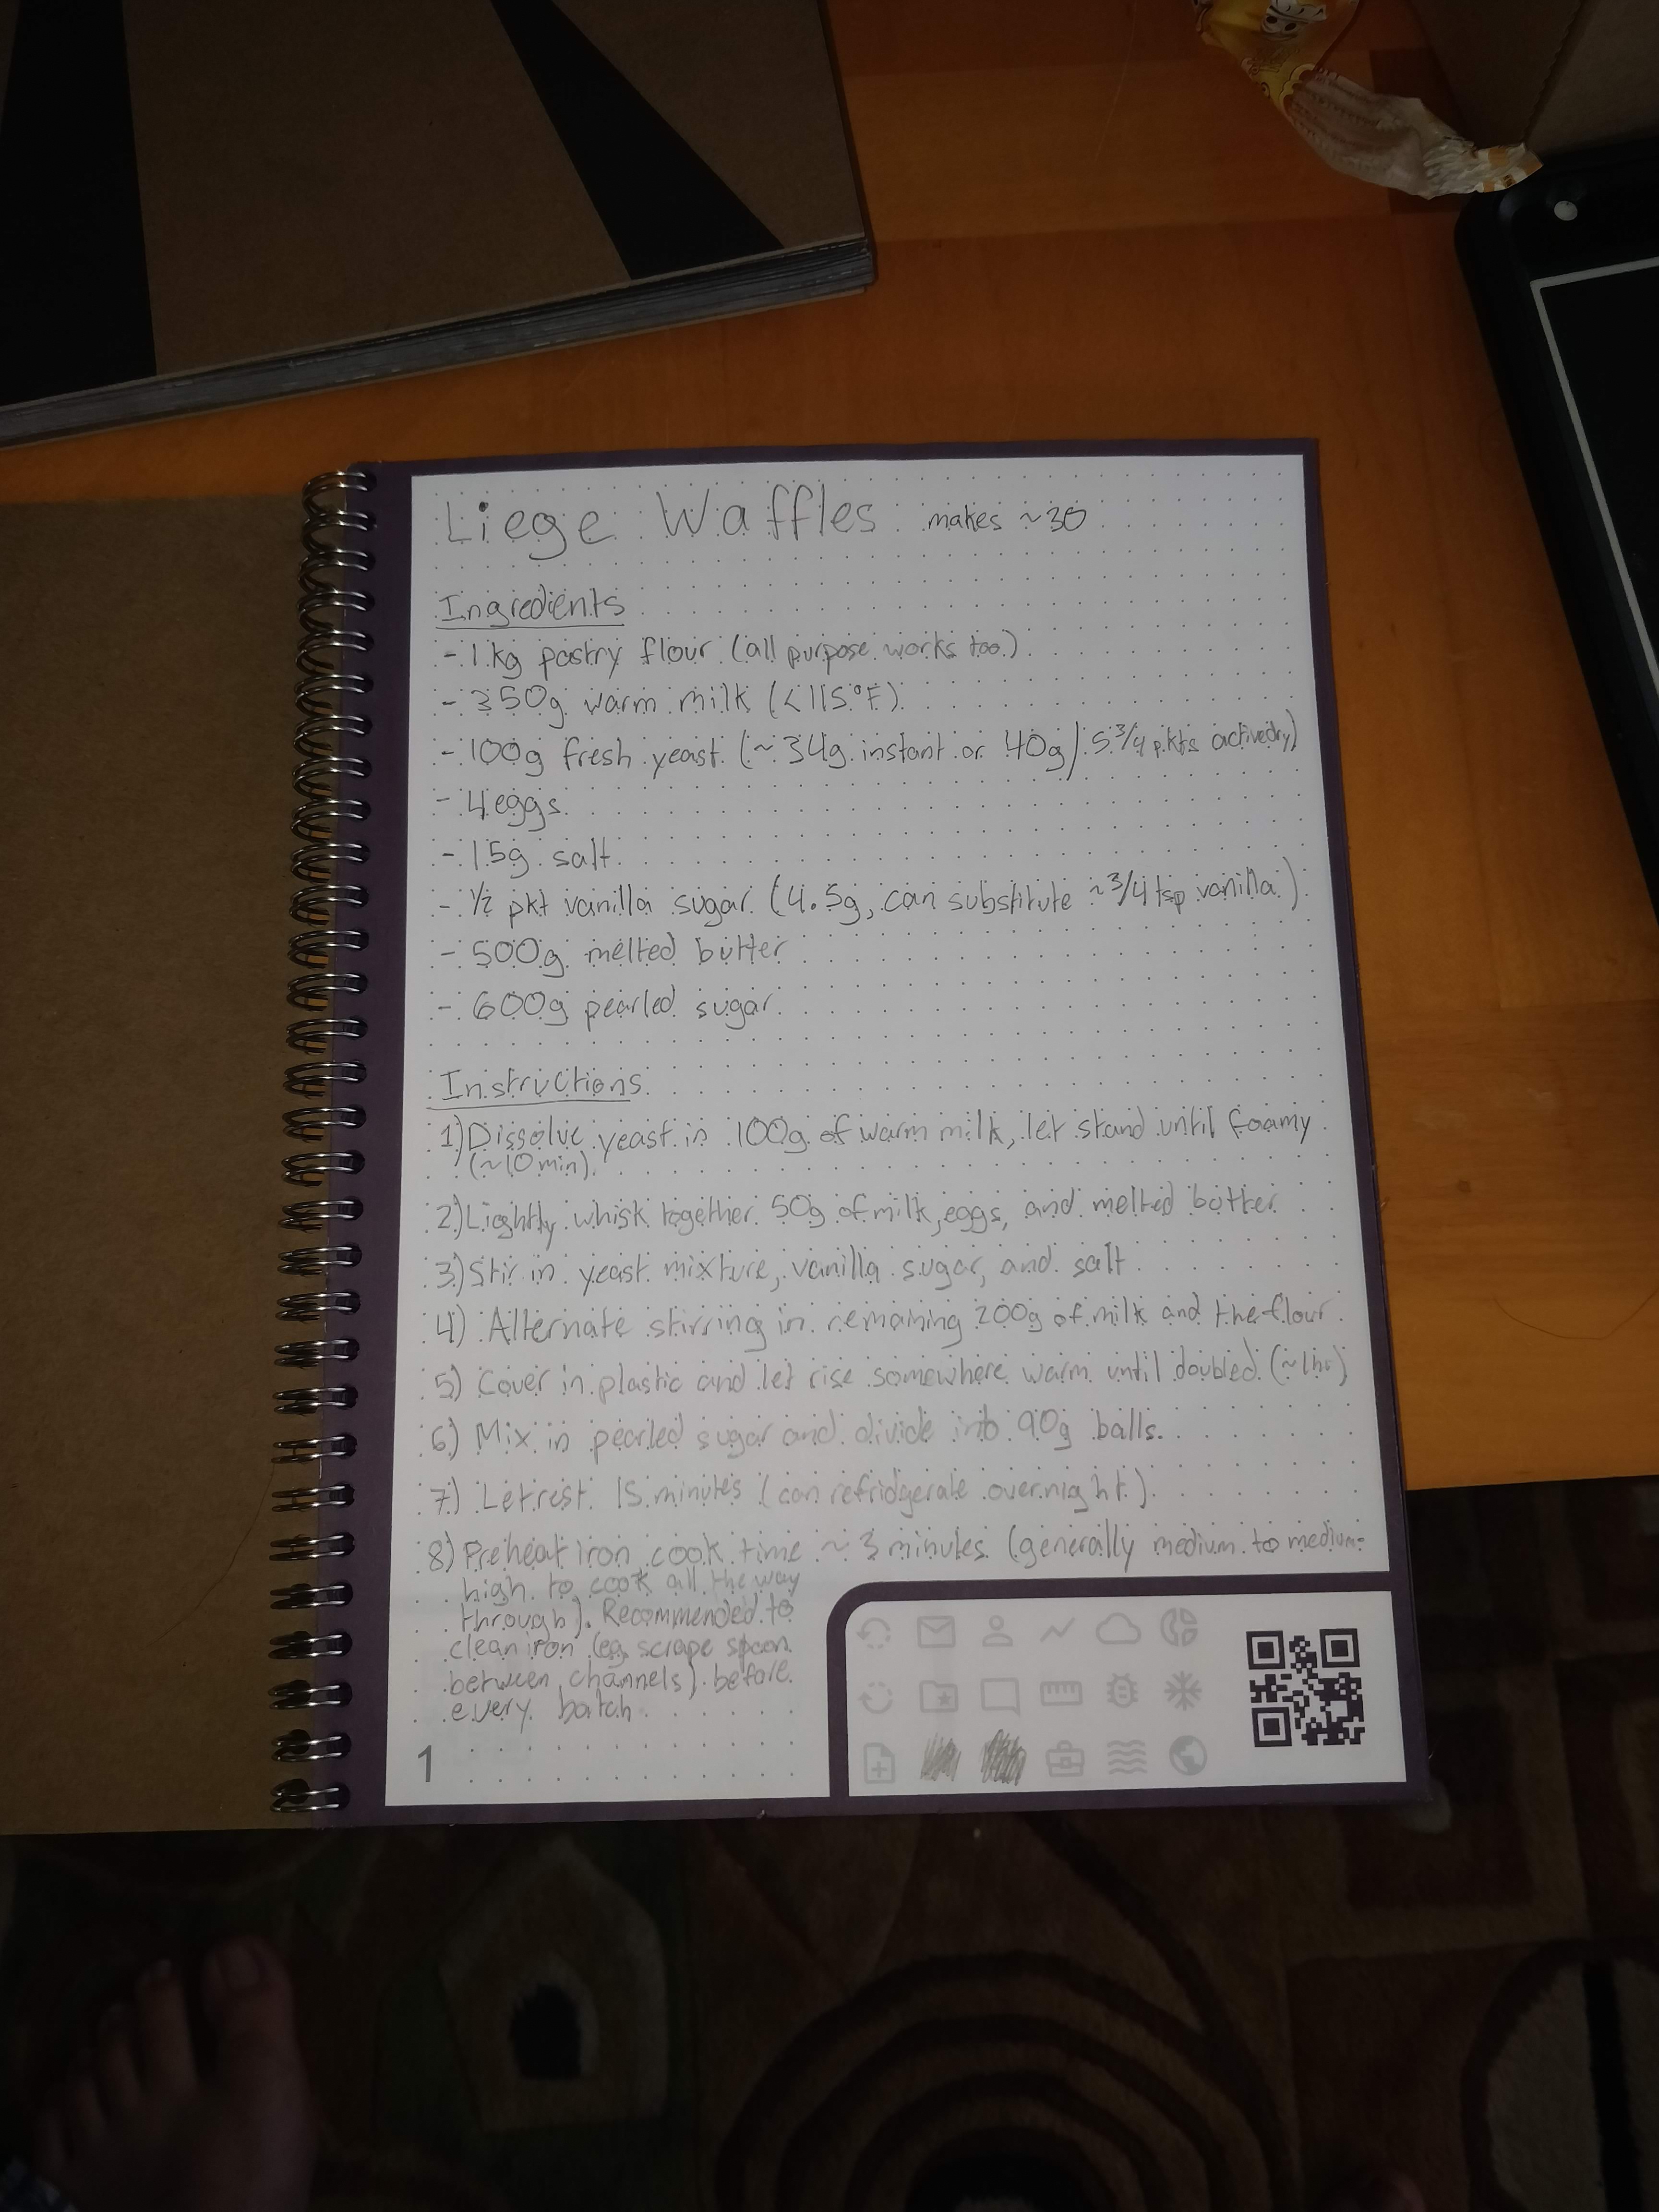 Liege Waffles makes ~30
Ingredients
- 1 kg pastry flour (all purpose works too)
- 350g warm milk (<115°F)
- 100g fresh yeast (~34g instant or 40g/5 3/4 pkts active dry)
- 4 eggs
- 15g salt
- 1/2 pkt vanilla sugar (4.5g, can substitute ~3/4 tsp vanilla)
- 500g melted butter
- 600g pearled sugar
Instructions
1) Dissolve yeast in 100g of warm milk, let stand until foamy
(~10 min).
2) Lightly whisk together 50g of milk, eggs, and melted butter
3) Stir in yeast mixture, vanilla sugar, and salt
4) Alternate stirring in remaining 200g of milk and the flour
5) Cover in plastic and let rise somewhere warm until doubled (~1hr)
6) Mix in pearled sugar and divide into 90g balls.
7) Let rest 15 minutes (can refridgerate overnight)
8) Preheat iron cook time ~3 minutes (generally medium to medium-
high to cook all the way
through). Recommended to
clean iron (eg. scrape spoon
between channels) before
every batch
1